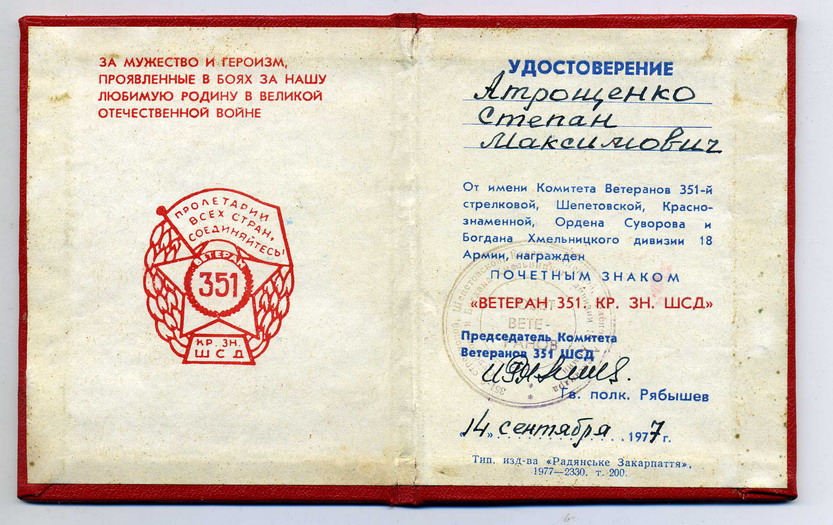 ЗА МУЖЕСТВО И ГЕРОИЗМ,
ПРОЯВЛЕННЫЕ В БОЯХ ЗА НАШУ
ЛЮБИМУЮ РОДИНУ В ВЕЛИКОЙ
ОТЕЧЕСТВЕННОЙ ВОЙНЕ
ПРОЛЕТАРИИ
ВСЕХ СТРАН,
СОЕДИНЯЙТЕСЬ!
ВЕТЕРАН
351
КР. ЗН.
ШСД
УДОСТОВЕРЕНИЕ
Атрощенко
Степан
Максимович
От имени Комитета Ветеранов 351-й
стрелковой, Шепетовской, Красно-
знаменной, Ордена Суворова и
Богдана Хмельницкого дивизии 18
Армии, награжден
ПОЧЕТНЫМ ЗНАКОМ
«ВЕТЕРАН 351. КР. ЗН. ШСД»
ВЕТЕ-
РАНОВ
Председатель Комитета
Ветеранов 351 ШСД
Гв. полк. Рябышев
«14» сентября 1977 г.
Тип. изд-ва «Радянське Закарпаття»,
1977—2330. т. 200.